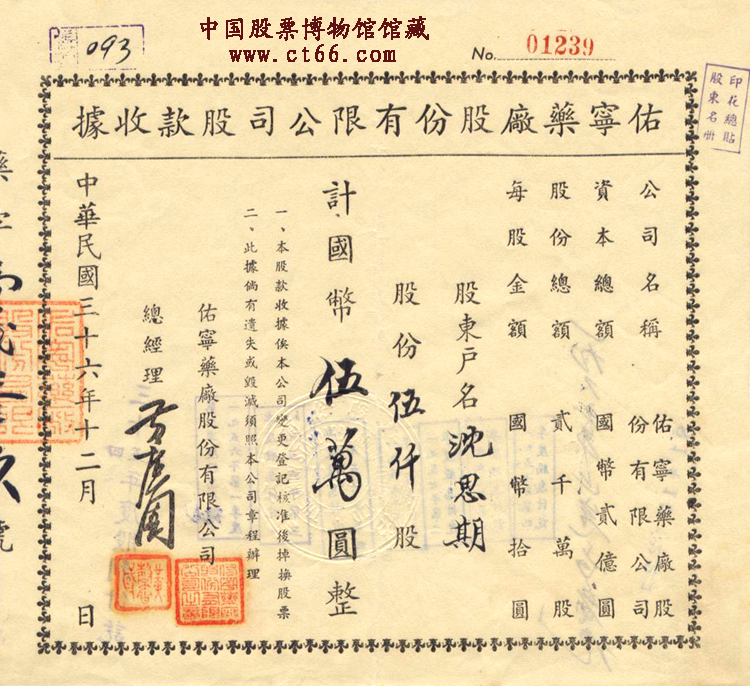 中国股票博物馆馆藏
www.ct66.com
093
No. 01239
印花總貼
股東名册
佑寧藥廠股份有限公司股款收據
公司名稱 佑寧藥廠股份有限公司
資本總額 國幣貳億圓
股份總額 貳千萬股
每股金額 國幣拾圓
股東戶名沈思期
股份伍仟股
計國幣伍萬圓整
一、本股款收據俟本公司變更登記核准後掉換股票
二、此據倘有遺失或毀滅須照本公司章程辦理
佑寧藥廠股份有限公司
總經理
中華民國三十六年十二月 日